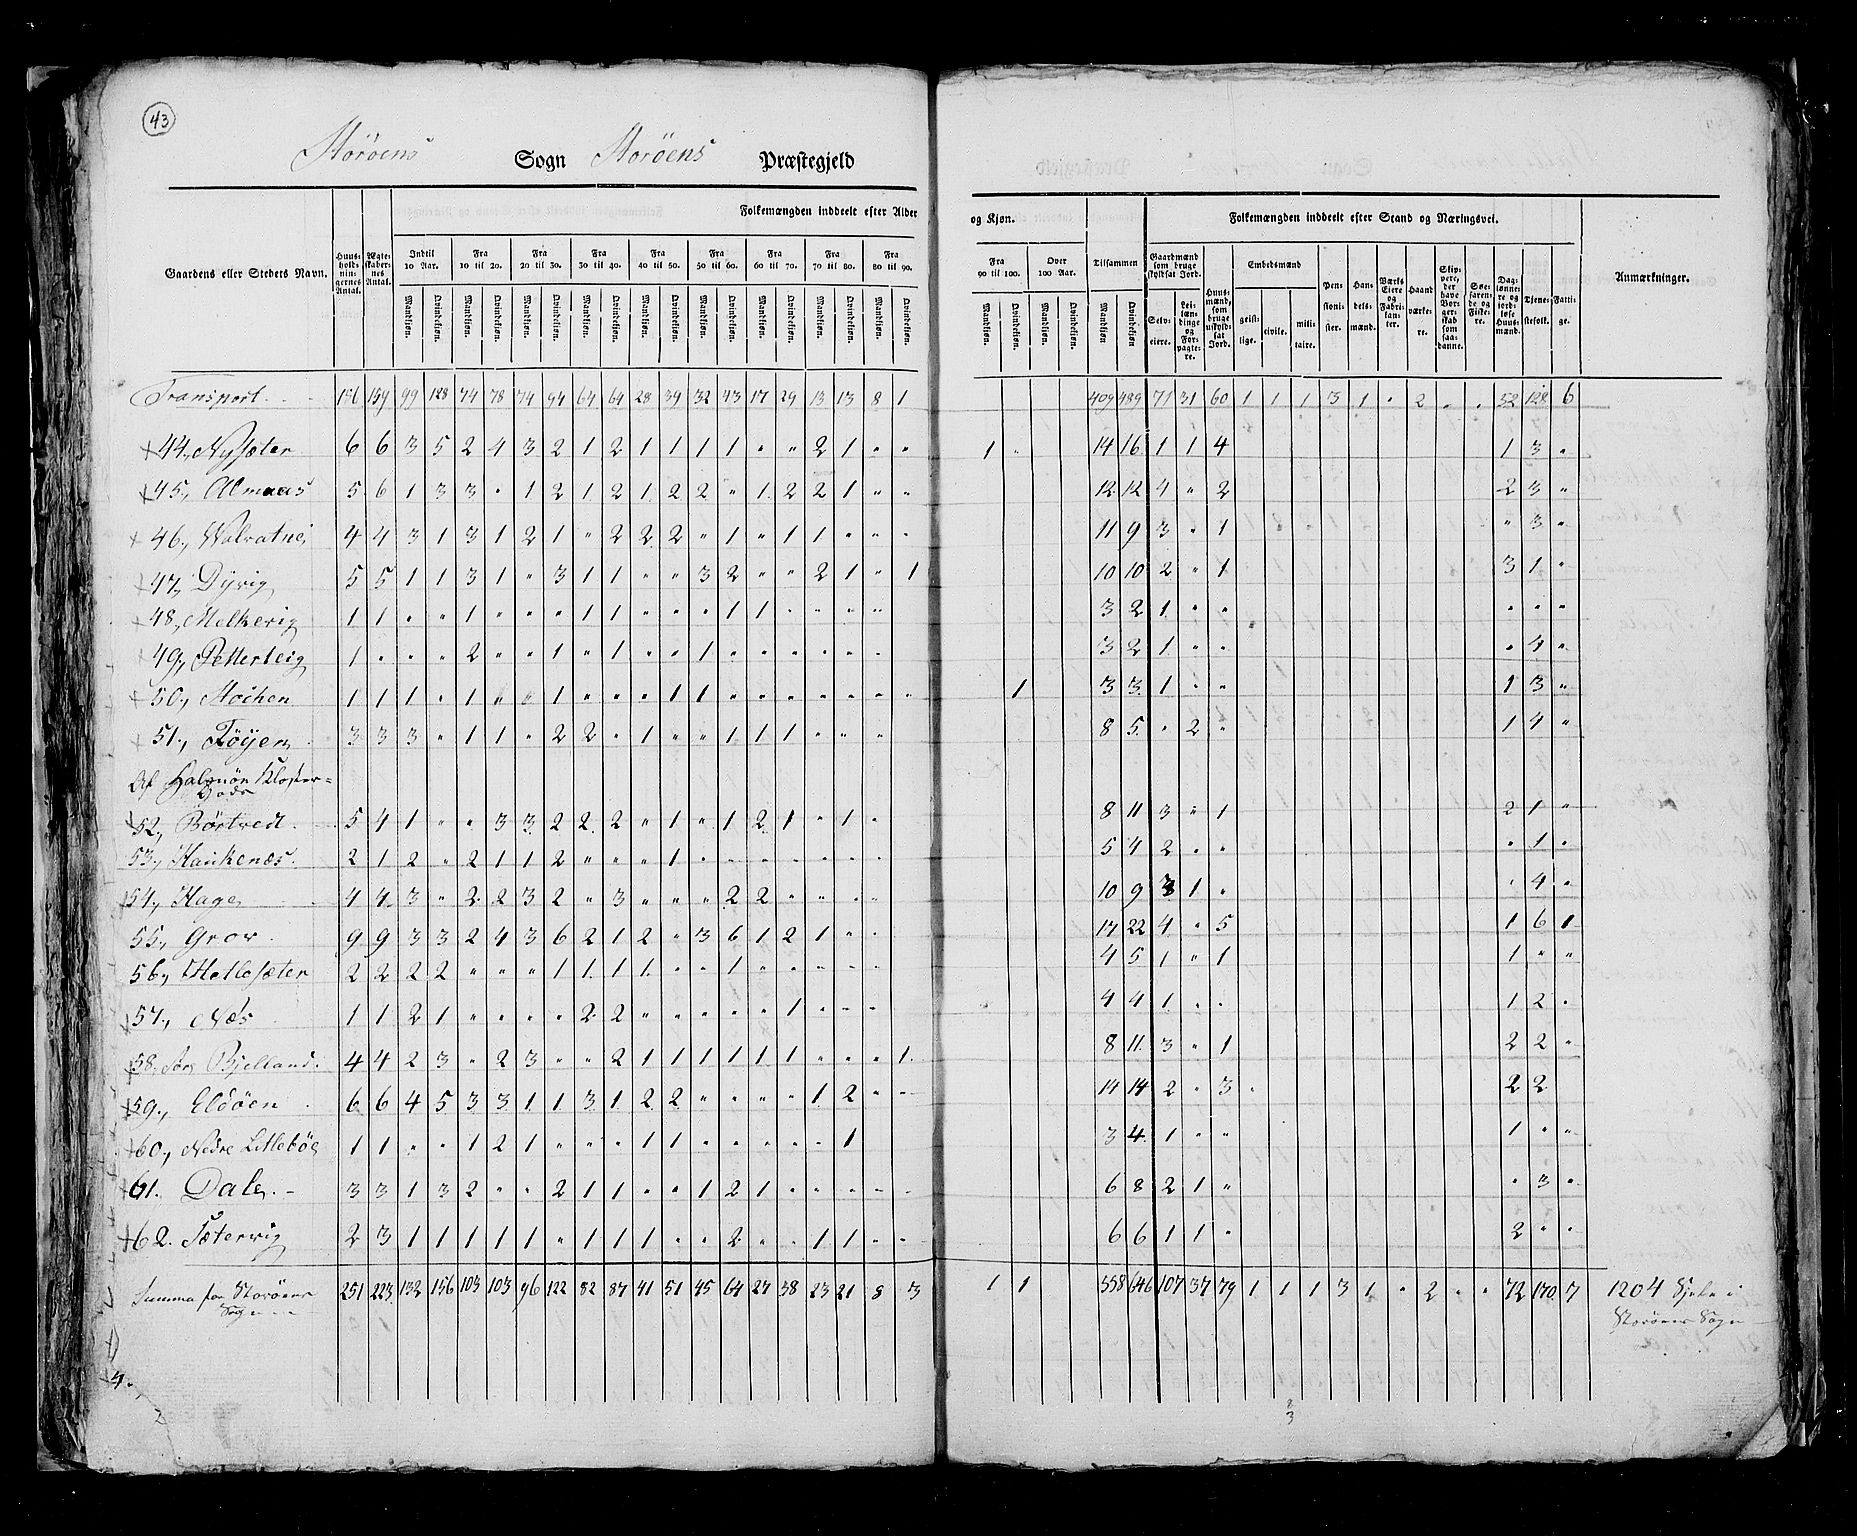 43
Storöens Sogn Storöens Præstegjeld
Gaardens eller Stedets Navn. Huusholdningernes Antal. Ægteskabernes Antal. Folkemængden inddeelt efter Alder og Kjøn. Tilsammen Folkemængden inddeelt efter Stand og Næringsvei. Anmærkninger.
Indtil 10 Aar. Fra 10 til 20. Fra 20 til 30. Fra 30 til 40. Fra 40 til 50. Fra 50 til 60. Fra 60 til 70. Fra 70 til 80. Fra 80 til 90. Fra 90 til 100. Over 100 Aar.
Mandkjøn. Qvindekjøn.
Gaardmænd som bruge skyldsat Jord. Selveiere. Leilændinge og Forpagtere. Huusmænd, som bruge uskyldsat Jord. Embedsmænd geistlige. civile. militaire. Pensionister. Handelsmænd. Værks Eiere og Fabrikanter. Haandværkere. Daglønnere og jordløse Huusmænd. Tjenestefolk. Fattige.
Transport 99 128 74 78 74 94 64 64 28 39 32 43 17 29 13 13 8 1 409 489 71 31 60 1 1 1 3 1 " 2 " " 52 128 6
44, Nysæter 6 6 3 5 2 4 3 2 1 2 1 1 1 1 " " 2 1 " " 1 " 14 16 1 1 4 1 3 "
45, Almaas 5 6 1 3 3 " 1 2 1 2 1 2 2 " 1 2 2 1 " " 12 12 4 " 2 2 3 "
46, Walvatne 4 4 3 1 3 1 2 1 " 2 2 2 " 1 " 1 1 " " " 11 9 3 " 1 " 3 "
47, Dyvig 5 5 1 1 3 1 " 3 1 1 " " 3 2 " " 2 1 " 1 10 10 2 " 1 3 1 "
48, Melkevig 1 1 " " 1 " " " 1 1 " " " 1 1 " " " " 3 2 1 " " " " "
49, Petterteig 1 " " " 2 " " 1 " 1 " " 1 " " " " " " 3 2 1 " " " 4 "
50, Stochen 1 1 1 " 1 " " 1 " " " 1 1 " " " " " " " 1 3 3 1 " " 1 3 "
51, Tøyen 3 3 3 " 1 1 " 2 2 " 1 " " 1 1 1 " " " 8 5 " 2 " 1 4 "
Af Halsnön Kloster=
Gods
52, Börtvedt 5 4 1 " " 3 3 2 2 2 " 1 " 1 2 1 " 1 " 8 11 3 " 1 2 1 "
53, Haukenæs 2 1 2 " 2 1 1 2 " " " 1 " " " " " " " 5 4 2 " " " 1 "
54, Hage 4 4 3 " 2 2 3 2 " 3 " " " 2 2 " " " " 10 9 3 1 " " 4 "
55, Grov 9 9 3 3 2 4 3 6 2 1 2 " 3 6 1 2 1 " " 17 22 4 " 5 1 6 1
56, Hetlesæter 2 2 2 2 " " " 1 1 1 1 " " 1 " " " " " 4 5 1 " 1 1 " "
57, Næs 1 1 2 1 " " " " 2 2 " " " " " 1 " " " 4 4 1 " " 1 2 "
58, Store Bjelland 4 4 2 3 " 2 3 " " 2 1 1 1 1 1 1 " " " 1 8 11 3 " 1 2 2 "
59, Eldöen 6 6 4 5 3 3 1 1 3 1 2 2 " " " " 1 2 " " 14 14 2 " 3 2 2
60, Nedre Litlebø 1 1 " " 1 2 1 " " " 1 1 " " " " " 1 3 4 1 " " 1 " "
61. Dale 3 3 1 3 2 " " 2 1 1 " " 1 2 1 " " " " " 6 8 2 1 " " 3 "
62. Sætervig 2 3 1 1 1 1 1 " 1 1 1 " " 2 " " 1 1 " " 6 6 1 1 " 2 " "
Summa for Storöens 251 223 132 156 103 103 96 122 82 87 41 51 45 64 27 38 23 21 8 3 1 1 558 646 107 37 79 1 1 1 3 1 " 2 " " 72 170 7 1204 Sjele i
Sogn Storöens Sogn